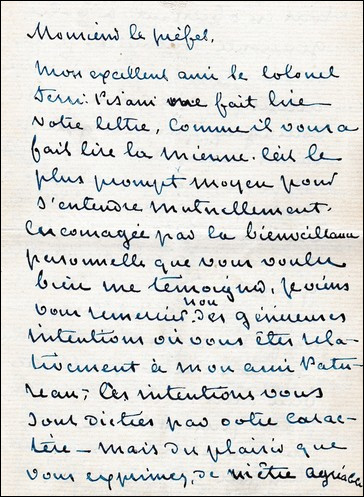 Monsieur le préfet,
Mon excellent ami le colonel
Ferri Pisani me fait lire
votre lettre, comme il vous a
fait lire la mienne. C'est le
plus prompt moyen pour
s'entendre mutuellement.
Encouragée par la bienveillance
personnelle que vous voulez
bien me témoigner, je viens
vous remercier, non des généreuses
intentions où vous êtes rela-
tivement à mon ami Patu-
reau; Ces intentions vous
sont dictées par votre carac-
tère — mais du plaisir que
vous exprimez, de m'être agréable